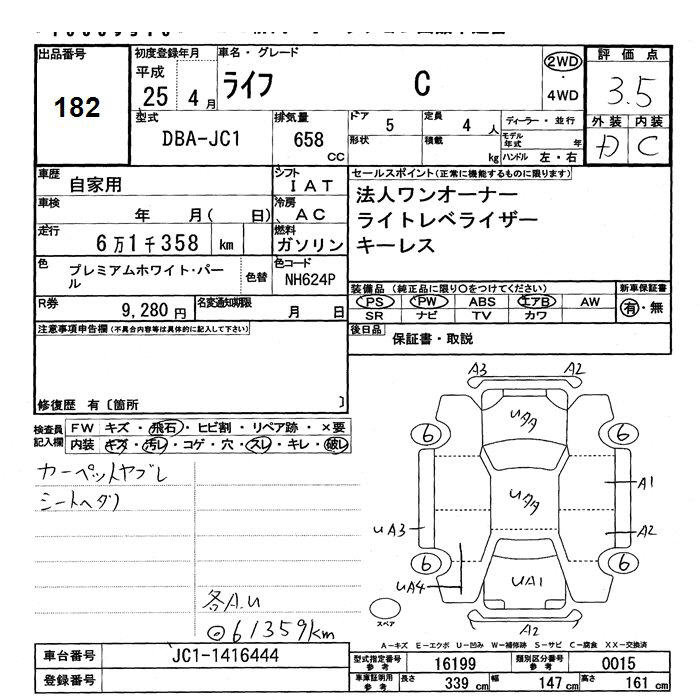 出品番号
182
初度登録年月
平成
25 4 月
車名・グレード
ライフ C
2WD
・
4WD
評 価 点
3.5
外 装 内 装
D C
型式
DBA-JC1
排気量
658
CC
ドア
5
定員
4 人
ディーラー・並行
形状
積載
kg
モデル年式 年
ハンドル 左・右
車歴
自家用
シフト
I A T
車検
年 月( 日)
冷房
A C
走行
6 万 1 千 358 km
燃料
ガソリン
色
プレミアムホワイト・パール
色替
色コード
NH624P
R券
9,280 円
名変通知期限
月 日
セールスポイント(正常に機能するものに限ります)
法人ワンオーナー
ライトレベライザー
キーレス
装備品 (純正品に限り○をつけてください)
新車保証書
PS PW ABS エアB AW
有・無
SR ナビ TV カワ
後日品
保証書・取説
注意事項申告欄(不具合内容等は具体的に記入して下さい)
修復歴 有〔箇所 〕
検査員記入欄
FW キズ・飛石・ヒビ割・リペア跡・×要
内装 キズ・汚レ・コゲ・穴・スレ・キレ・破レ
カーペットヤブレ
シートヘタリ
各A.U
◎61359km
A3 A2
UAA
6 6
UAA
A1
UA3
A2
6 6
UA4
UA1
スペア
A2
A-キズ E-エクボ U-凹み W-補修跡 S-サビ C-腐食 XX-交換済
車台番号
JC1-1416444
登録番号
型式指定番号
参考
16199
類別区分番号
参考
0015
車庫証明用
参考
長さ
339 cm
幅
147 cm
高さ
161 cm